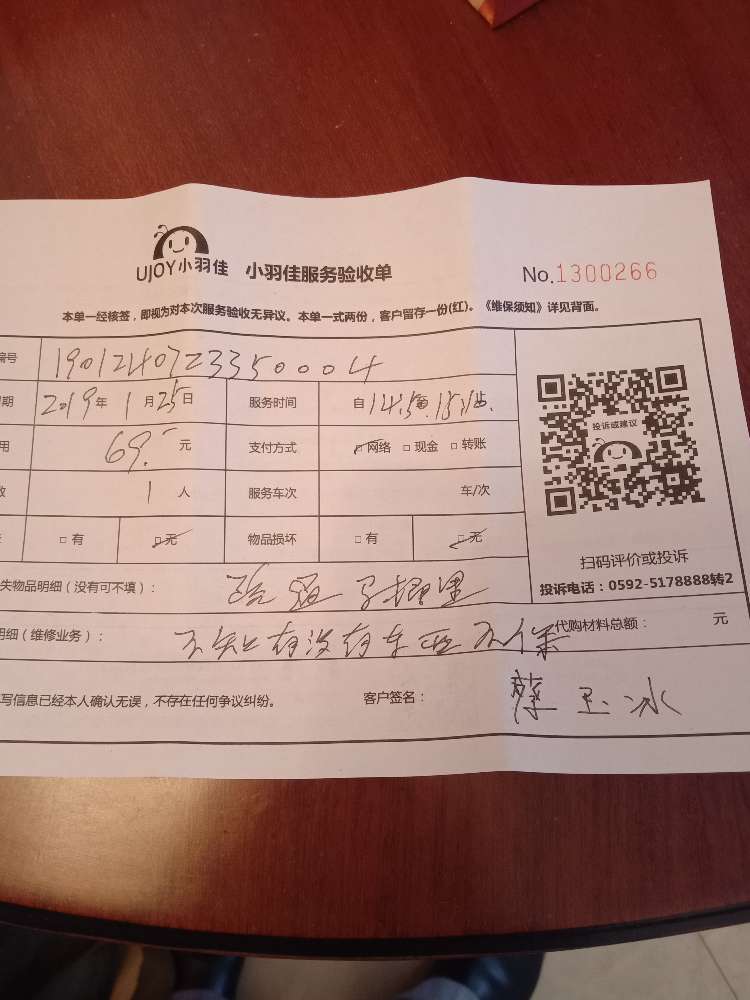 UJOY小羽佳 小羽佳服务验收单 No.1300266
本单一经核签，即视为对本次服务验收无异议。本单一式两份，客户留存一份(红)。《维保须知》详见背面。
编号 1901240723350004
期 2019年 1月25日 服务时间 自
用 69.- 元 支付方式 □网络 □现金 □转账
数 1 人 服务车次 车/次
□有 □无 物品损坏 □有 □无
投诉或建议
扫码评价或投诉
投诉电话：0592-5178888转2
失物品明细（没有可不填）：
明细（维修业务）： 代购材料总额： 元
写信息已经本人确认无误，不存在任何争议纠纷。 客户签名：